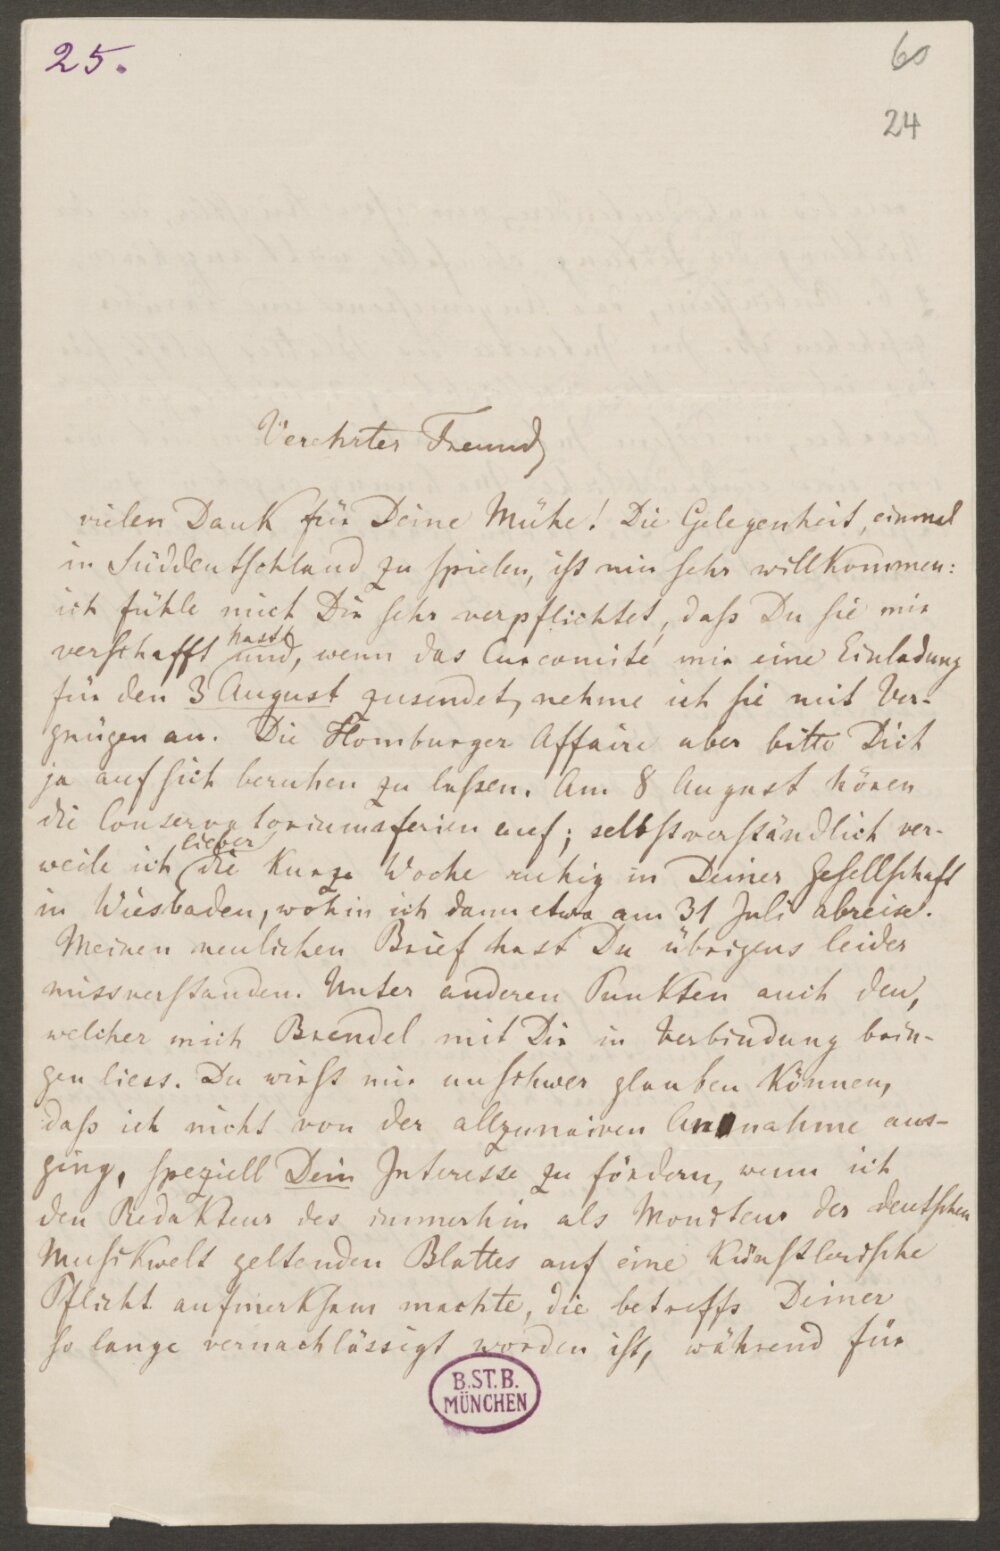 25.
60
24
Verehrter Freund,
vielen Dank für Deine Mühe! Die Gelegenheit, einmal
in Süddeutschland zu spielen, ist mir sehr willkommen:
ich fühle mich Dir sehr verpflichtet, daß Du sie mir
verschafft hast und, wenn das Curcomité mir eine Einladung
für den 3 August zusendet, nehme ich sie mit Ver-
gnügen an. Die Homburger Affaire aber bitte Dich
ja auf sich beruhen zu laßen. Am 8 August hören
die Conservatoriumsferien auf; selbstverständlich ver-
weile ich lieber die kurze Woche ruhig in Deiner Gesellschaft
in Wiesbaden, wohin ich dann etwa am 31 Juli abreise.
Meinen neulichen Brief hast Du übrigens leider
missverstanden. Unter anderen Punkten auch den,
welcher mich Brendel mit Dir in Verbindung brin-
gen liess. Du wirst mir unschwer glauben können,
daß ich nicht von der allzunaiven Annahme aus-
ging, speziell Dein Interesse zu fördern, wenn ich
den Redakteur des immerhin als Moniteur der deutschen
Musikwelt geltenden Blattes auf eine künstlerische
Pflicht aufmerksam machte, die betreffs Deiner
so lange vernachlässigt worden ist, während für
B.ST.B.
MÜNCHEN